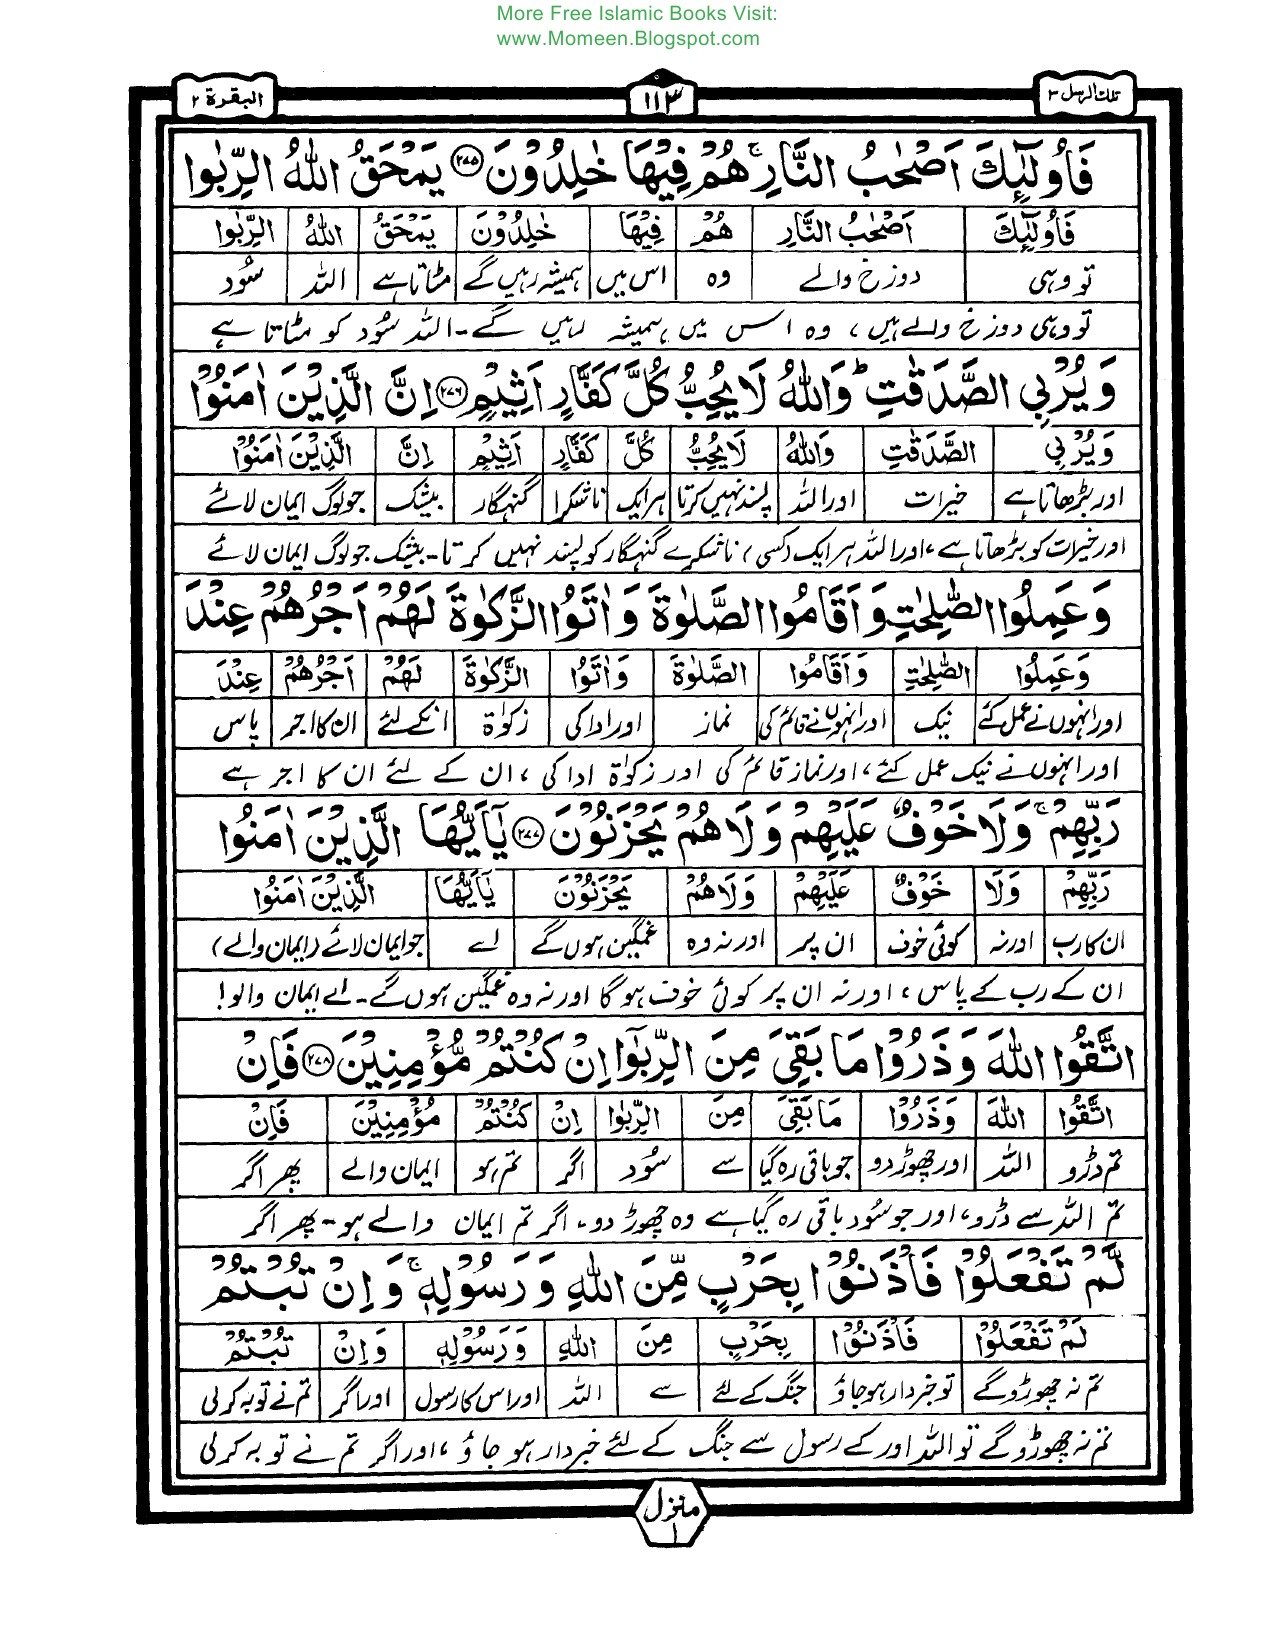 More Free Islamic Books Visit:
www.Momeen.Blogspot.com
تلك الرسل ٣ ١١٣ البقرة ٢
فَاُولٰٓئِكَ اَصْحٰبُ النَّارِ ۚ هُمْ فِيْهَا خٰلِدُوْنَ ۝٢٧٥ يَمْحَقُ اللّٰهُ الرِّبٰوا
فَاُولٰٓئِكَ اَصْحٰبُ النَّارِ هُمْ فِيْهَا خٰلِدُوْنَ يَمْحَقُ اللّٰهُ الرِّبٰوا
تو وہی دوزخ والے وہ اس میں ہمیشہ رہیں گے مٹاتا ہے اللہ سُود
تو وہی دوزخ والے ہیں، وہ اس میں ہمیشہ رہیں گے۔ اللہ سُود کو مٹاتا ہے
وَيُرْبِي الصَّدَقٰتِ ؕ وَاللّٰهُ لَا يُحِبُّ كُلَّ كَفَّارٍ اَثِيْمٍ ۝٢٧٦ اِنَّ الَّذِيْنَ اٰمَنُوْا
وَيُرْبِي الصَّدَقٰتِ وَاللّٰهُ لَا يُحِبُّ كُلَّ كَفَّارٍ اَثِيْمٍ اِنَّ الَّذِيْنَ اٰمَنُوْا
اور بڑھاتا ہے خیرات اور اللہ پسند نہیں کرتا ہر ایک ناشکرا گنہگار بیشک جو لوگ ایمان لائے
اور خیرات کو بڑھاتا ہے، اور اللہ ہر ایک (کسی) ناشکرے گنہگار کو پسند نہیں کرتا۔ بیشک جو لوگ ایمان لائے
وَعَمِلُوا الصّٰلِحٰتِ وَاَقَامُوا الصَّلٰوةَ وَاٰتَوُا الزَّكٰوةَ لَهُمْ اَجْرُهُمْ عِنْدَ
وَعَمِلُوا الصّٰلِحٰتِ وَاَقَامُوا الصَّلٰوةَ وَاٰتَوُا الزَّكٰوةَ لَهُمْ اَجْرُهُمْ عِنْدَ
اور انہوں نے عمل کئے نیک اور انہوں نے قائم کی نماز اور ادا کی زکوٰۃ انکے لئے ان کا اجر پاس
اور انہوں نے نیک عمل کئے، اور نماز قائم کی اور زکوٰۃ ادا کی، ان کے لئے ان کا اجر ہے
رَبِّهِمْ ۚ وَلَا خَوْفٌ عَلَيْهِمْ وَلَا هُمْ يَحْزَنُوْنَ ۝٢٧٧ يٰۤاَيُّهَا الَّذِيْنَ اٰمَنُوا
رَبِّهِمْ وَلَا خَوْفٌ عَلَيْهِمْ وَلَا هُمْ يَحْزَنُوْنَ يٰۤاَيُّهَا الَّذِيْنَ اٰمَنُوا
ان کا رب اور نہ کوئی خوف ان پر اور نہ وہ غمگین ہوں گے اے جو ایمان لائے (ایمان والے)
ان کے رب کے پاس، اور نہ ان پر کوئی خوف ہوگا اور نہ وہ غمگین ہوں گے۔ اے ایمان والو!
اتَّقُوا اللّٰهَ وَذَرُوْا مَا بَقِيَ مِنَ الرِّبٰٓوا اِنْ كُنْتُمْ مُّؤْمِنِيْنَ ۝٢٧٨ فَاِنْ
اتَّقُوا اللّٰهَ وَذَرُوْا مَا بَقِيَ مِنَ الرِّبٰٓوا اِنْ كُنْتُمْ مُؤْمِنِيْنَ فَاِنْ
تم ڈرو اللہ اور چھوڑ دو جو باقی رہ گیا سے سُود اگر تم ہو ایمان والے پھر اگر
تم اللہ سے ڈرو، اور جو سُود باقی رہ گیا ہے وہ چھوڑ دو، اگر تم ایمان والے ہو۔ پھر اگر
لَّمْ تَفْعَلُوْا فَاْذَنُوْا بِحَرْبٍ مِّنَ اللّٰهِ وَرَسُوْلِهٖ ۚ وَاِنْ تُبْتُمْ
لَمْ تَفْعَلُوْا فَاْذَنُوْا بِحَرْبٍ مِنَ اللّٰهِ وَرَسُوْلِهٖ وَاِنْ تُبْتُمْ
تم نہ چھوڑو گے تو خبردار ہو جاؤ جنگ کے لئے سے اللہ اور اس کا رسول اور اگر تم نے توبہ کر لی
تم نہ چھوڑو گے تو اللہ اور کے رسول سے جنگ کے لئے خبردار ہو جاؤ، اور اگر تم نے توبہ کر لی
منزل ١